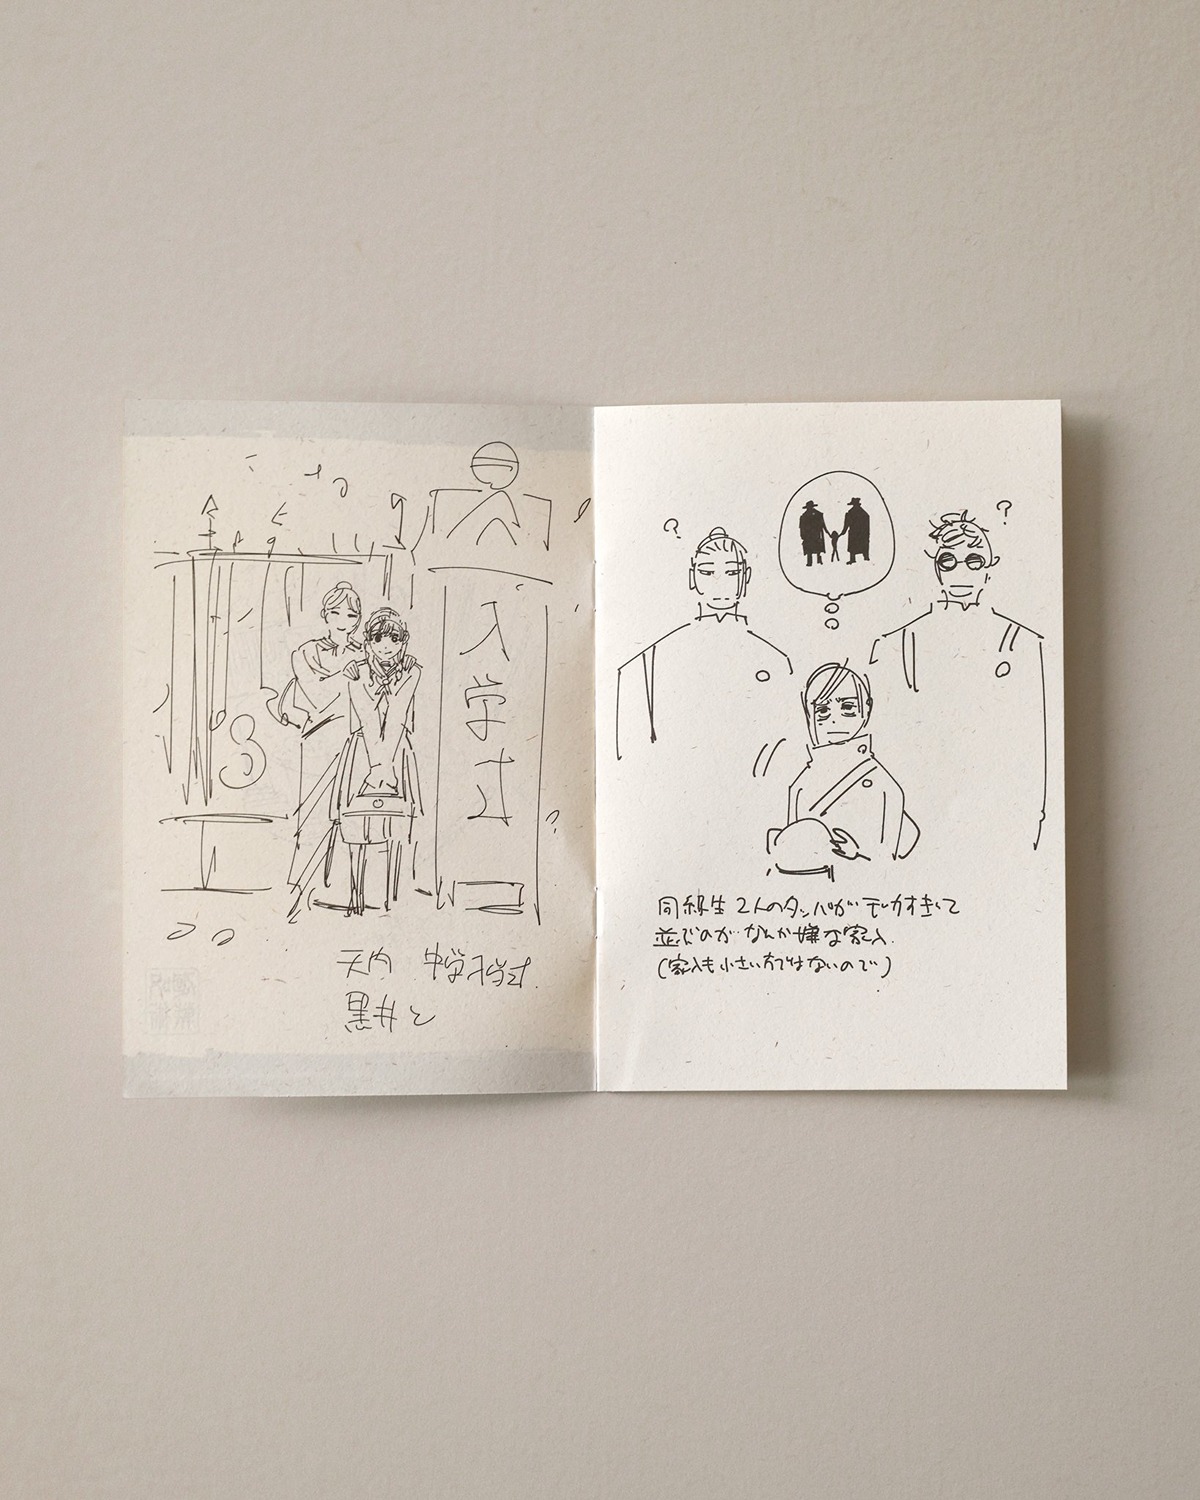 入学式
天内 中学入学式
黒井と
?
?
同級生2人のタッパがデカすぎて
並ぶのがなんか嫌な家入
(家入も小さい方ではないので)